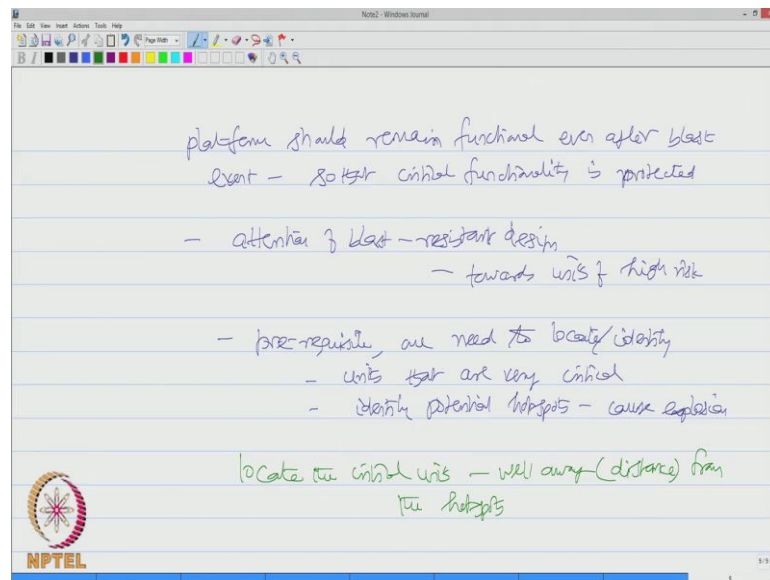 Note2 - Windows Journal
File Edit View Insert Actions Tools Help
Page Width
B I
platform should remain functional even after blast
event - so that critical functionality is protected
- attention of blast-resistant design
- towards units of high risk
- pre-requisite, one need to locate/identify
- units that are very critical
- identify potential hotspots - cause explosion
locate the critical units - well away (distance) from
the hotspots
NPTEL
9/9